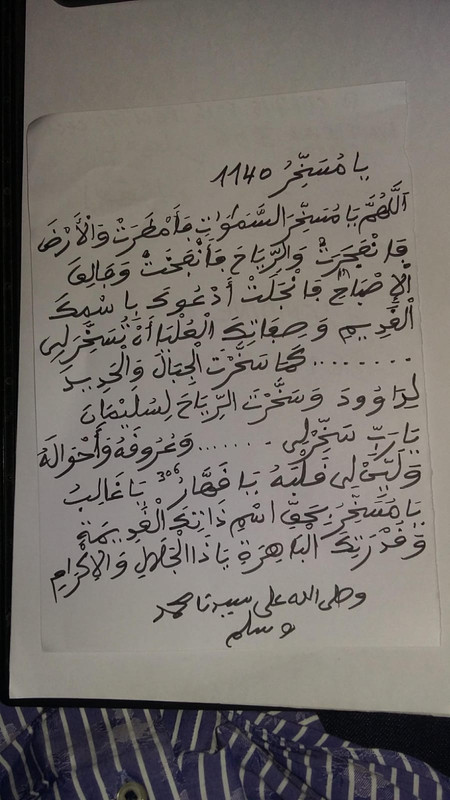 يا مُسَخِّرُ 1140
اَللَّهُمَّ يَا مُسَخِّرَ السَّمَوَاتِ فَأَمْطَرَتْ وَالْأَرْضَ
فَانْفَجَرَتْ وَالرِّيَاحَ فَانْفَجَتْ وَفَالِقَ
الْإِصْبَاحِ فَانْجَلَتْ أَدْعُوكَ بِاسْمِكَ
الْقَدِيمِ وَصِفَاتِكَ الْعُلْيَا أَنْ تُسَخِّرَ لِي
........ كَمَا سَخَّرْتَ الْجِبَالَ وَالْحَدِيدَ
لِدَاوُودَ وَسَخَّرْتَ الرِّيَاحَ لِسُلَيْمَانَ
يَا رَبِّ سَخِّرْ لِي ....... وَعُرُوقَهُ وَأَحْوَالَهُ
وَلَيِّنْ لِي قَلْبَهُ يَا قَهَّارُ 306 يَا غَالِبُ
يَا مُسَخِّرُ بِحَقِّ اسْمِ ذَاتِكَ الْقَدِيمَةِ
وَقُدْرَتِكَ الْبَاهِرَةِ يَا ذَا الْجَلَالِ وَالْإِكْرَامِ
وصلى الله على سيدنا محمد
وسلم